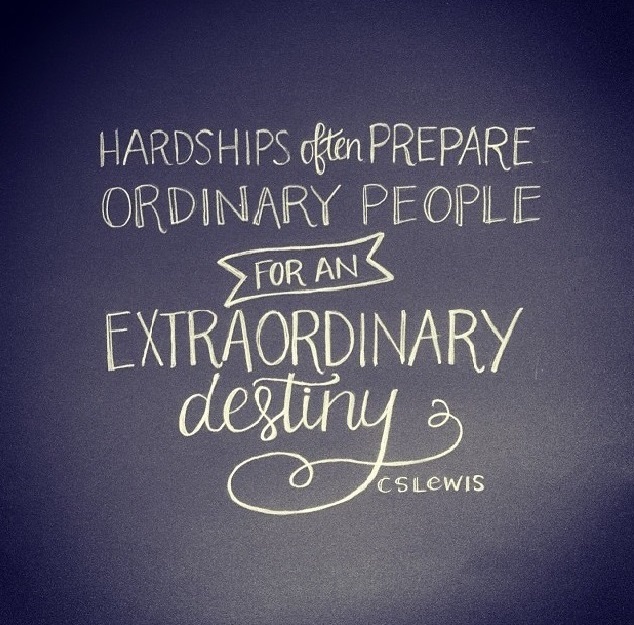 HARDSHIPS often PREPARE
ORDINARY PEOPLE
FOR AN
EXTRAORDINARY
destiny
CSLewis